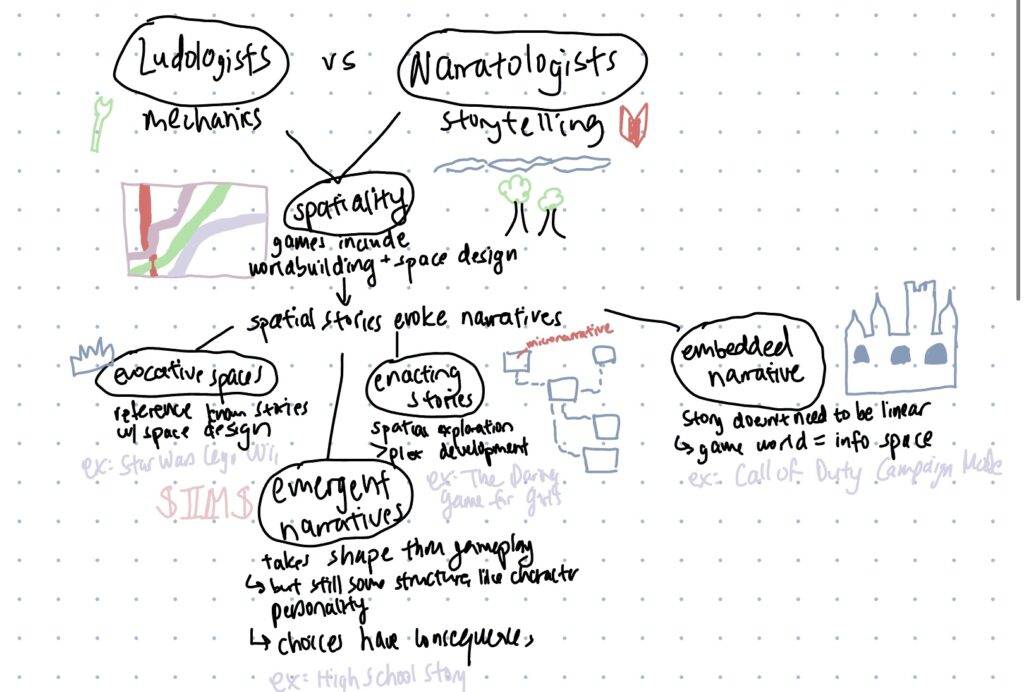 Ludologists vs Narratologists
mechanics
storytelling
spatiality
games include
worldbuilding + space design
spatial stories evoke narratives
evocative spaces
reference known stories
w/ space design
ex: Star Wars Lego Wii
enacting
stories
spatial exploration
> plot development
ex: The Daring
game for girls
micronarrative
embedded
narrative
story doesn't need to be linear
↳ game world = info space
ex: Call of Duty Campaign Mode
emergent
narratives
takes shape thru gameplay
↳ but still some structure, like character
personality
↳ choices have consequences
ex: High School Story